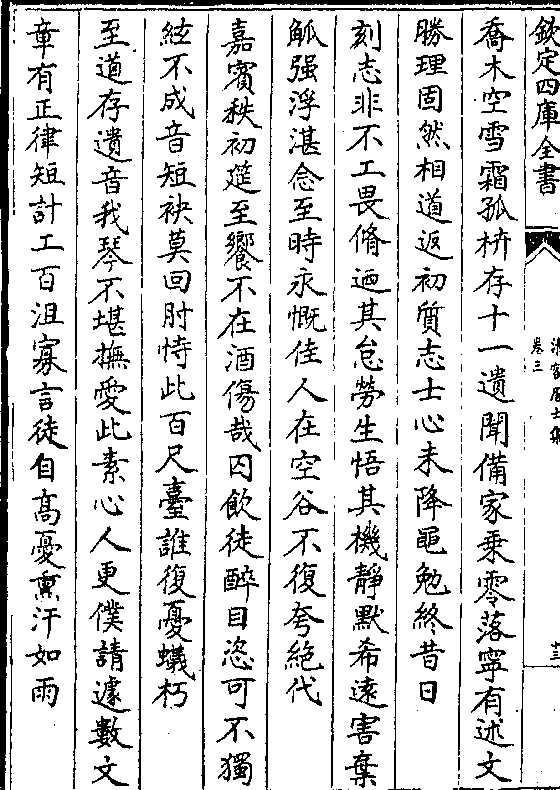 欽定四庫全書
卷三
十三
喬木空雪霜孤枿存十一遺聞備家乗零落寧有述文
勝理固然相道返初質志士心未降黽勉終昔日
刻志非不工畏脩迺其怠勞生悟其機靜默希逺害棄
觚强浮湛念至時永慨佳人在空谷不復夸絶代
嘉賓秩初筵至饗不在酒傷哉囚飲徒醉目恣可不獨
絃不成音短袂莫回肘恃此百尺臺誰復憂蟻朽
至道存遺音我琴不堪撫愛此素心人更僕請遽數文
章有正律短計工百沮寡言徒自髙憂熏汗如雨